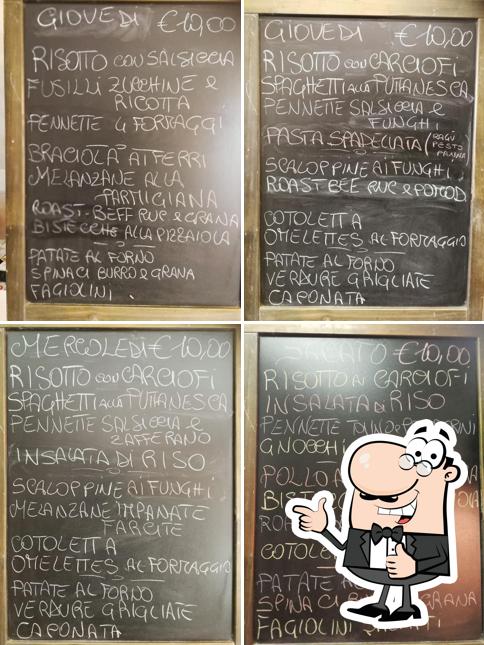 GIOVEDI €10,00
RISOTTO CON SALSICCIA
FUSILLI ZUCCHINE e
RICOTTA
PENNETTE 4 FORMAGGI
BRACIOLA AI FERRI
MELANZANE ALLA
PARMIGIANA
ROAST-BEFF RUC e GRANA
BISTECCHE ALLA PIZZAIOLA
PATATE AL FORNO
SPINACI BURRO e GRANA
FAGIOLINI
GIOVEDI €10,00
RISOTTO CON CARCIOFI
SPAGHETTI ALLA PUTTANESCA
PENNETTE SALSICCIA e
FUNGHI
PASTA SPADELLATA (RAGÙ
PESTO
PANNA
SCALOPPINE AI FUNGHI
ROAST BEE RUC e POMOD.
COTOLETTA
OMELETTES AL FORMAGGIO
PATATE AL FORNO
VERDURE GRIGLIATE
CAPONATA
MERCOLEDI €10,00
RISOTTO CON CARCIOFI
SPAGHETTI ALLA PUTTANESCA
PENNETTE SALSICCIA e
ZAFFERANO
INSALATA DI RISO
SCALOPPINE AI FUNGHI
MELANZANE IMPANATE
FARCITE
COTOLETTA
OMELETTES AL FORMAGGIO
PATATE AL FORNO
VERDURE GRIGLIATE
CAPONATA
SABATO €10,00
RISOTTO AI CARCIOFI
INSALATA DI RISO
PENNETTE TONNO e
GNOCCHI
POLLO
COTOLE
PATATE
SPINACI GRANA
FAGIOLINI